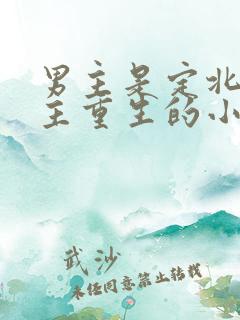 男主是定北
主重生的小
武沙
未经同意禁止转载